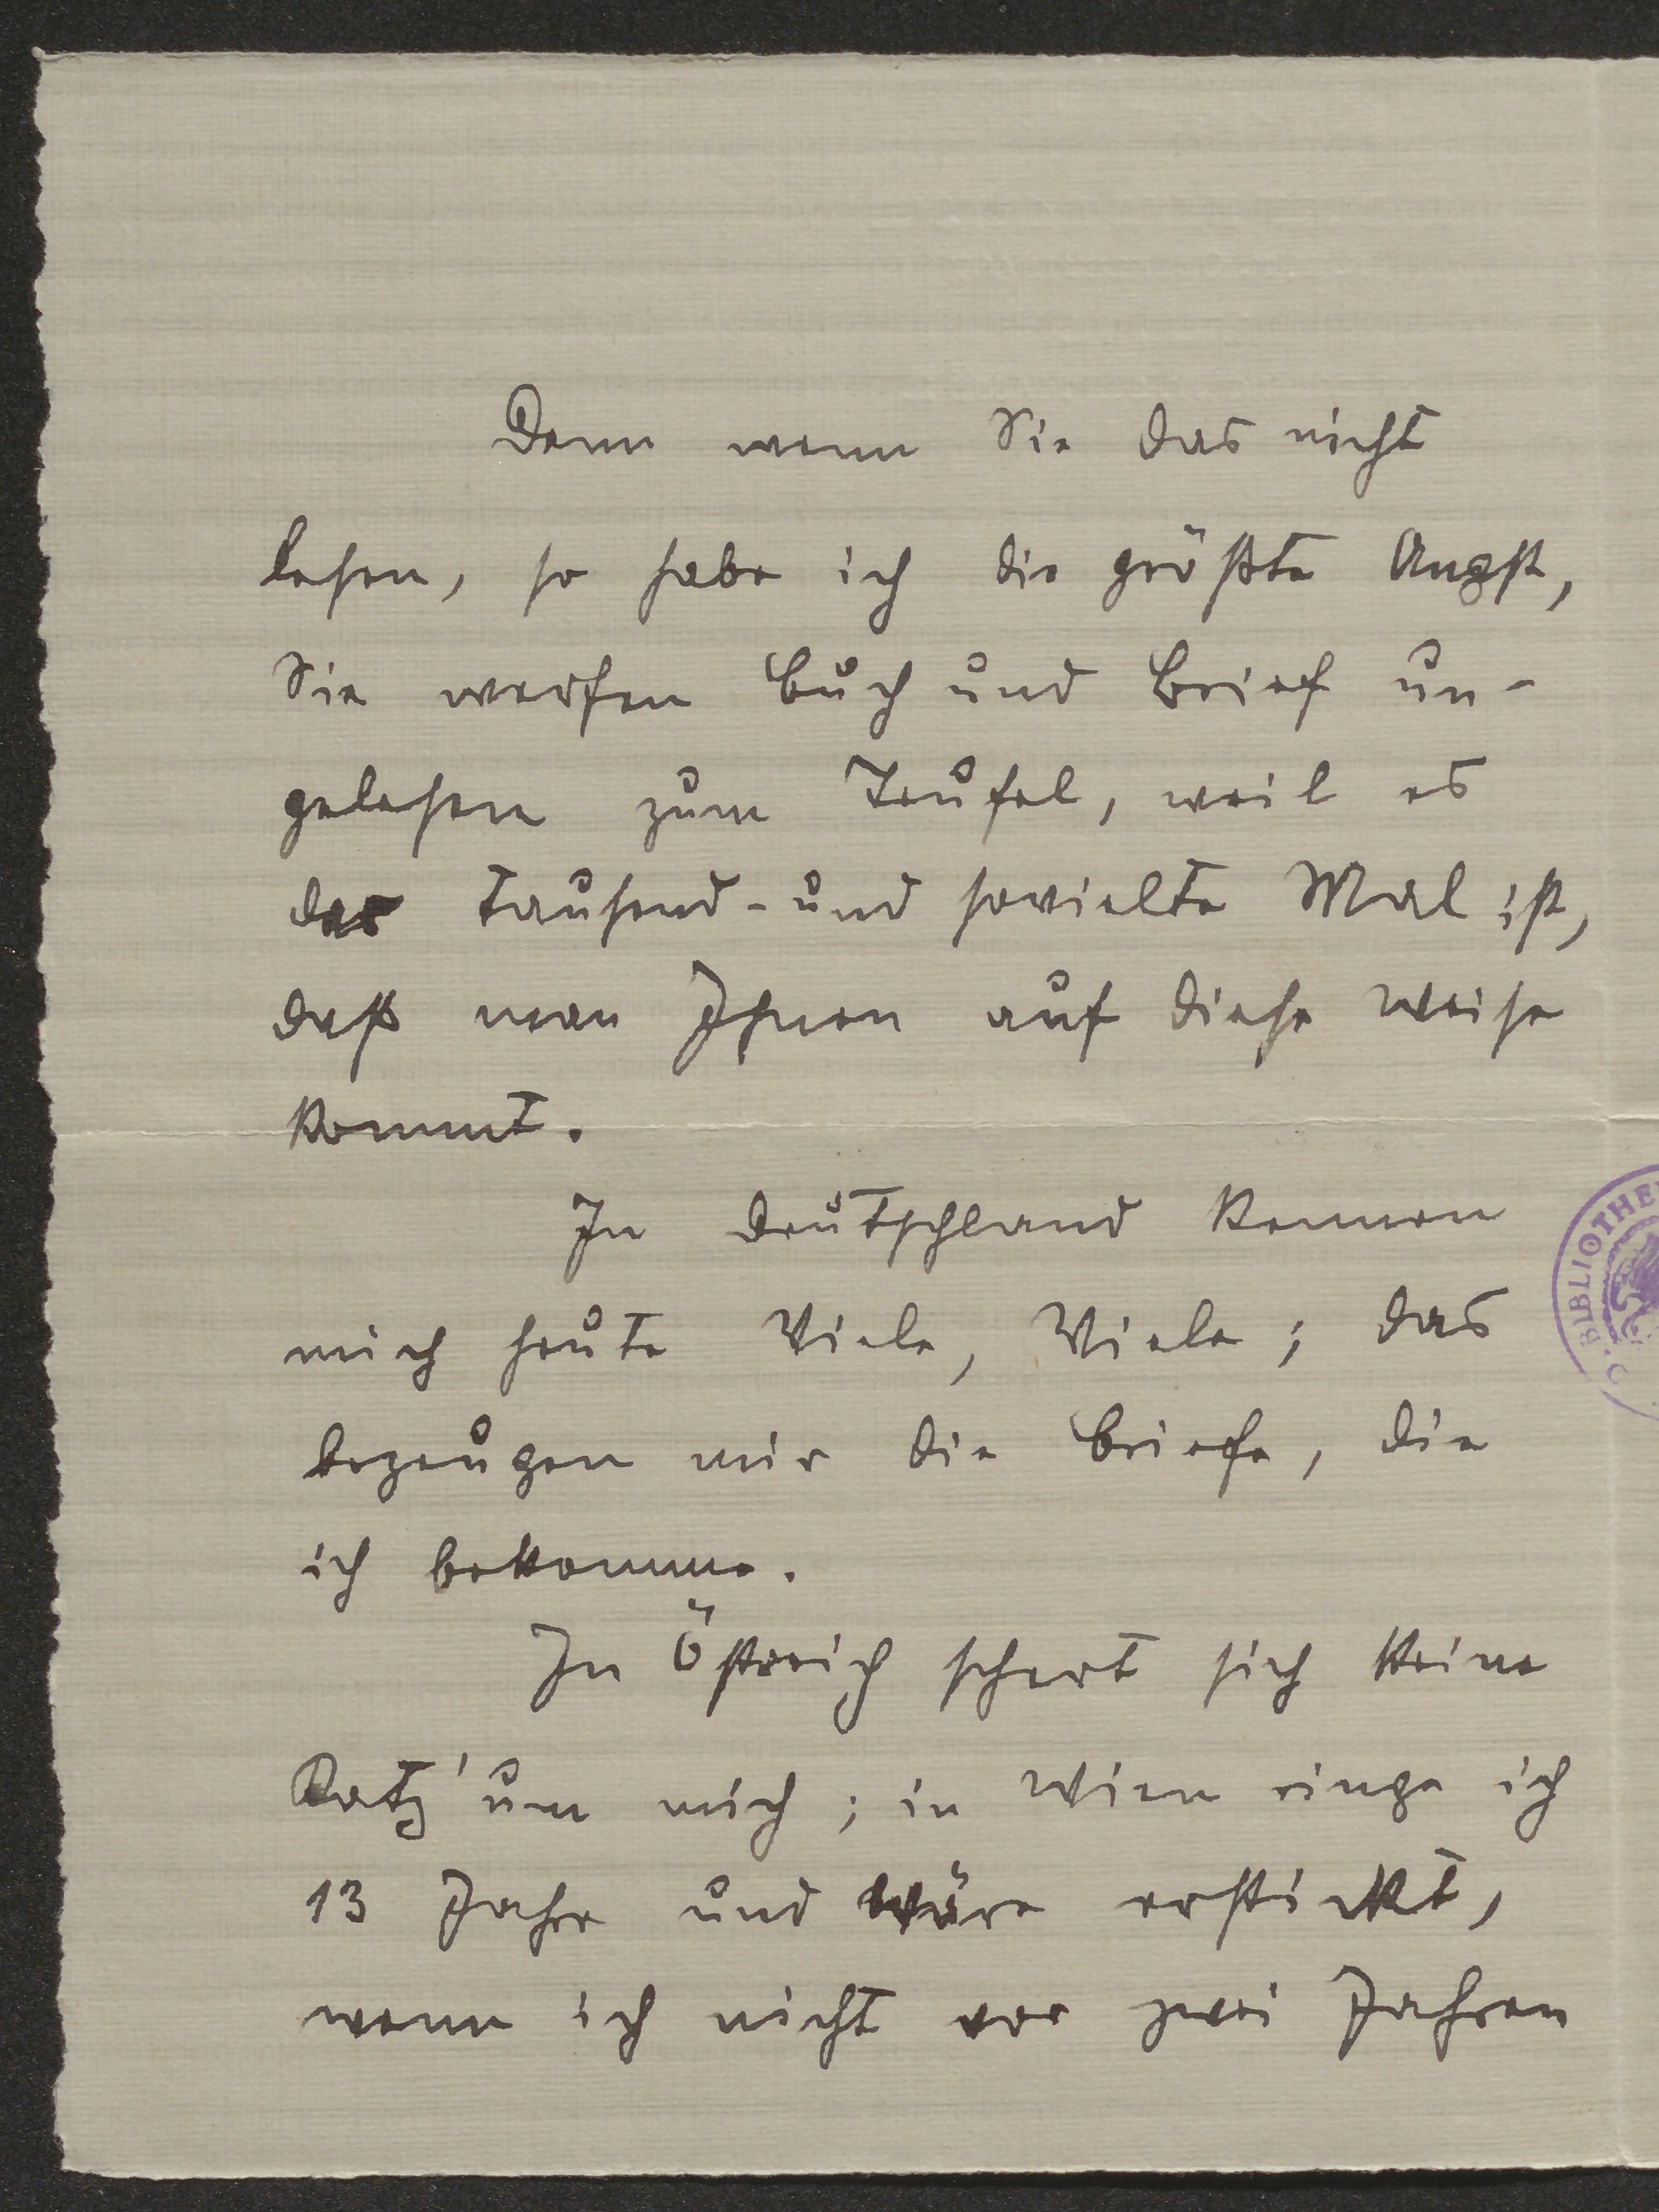 Denn wenn Sie das nicht
lesen, so habe ich die größte Angst,
Sie werfen Buch und Brief un-
gelesen zum Teufel, weil es
das tausend-und sovielte Mal ist,
daß man Ihnen auf diese Weise
kommt.
In Deutschland kennen
mich heute Viele, Viele; das
bezeugen mir die Briefe, die
ich bekomme.
In Östreich schert sich keine
Katz' um mich; in Wien ringe ich
13 Jahre und wäre erstickt,
wenn ich nicht vor zwei Jahren
BIBLIOTHE